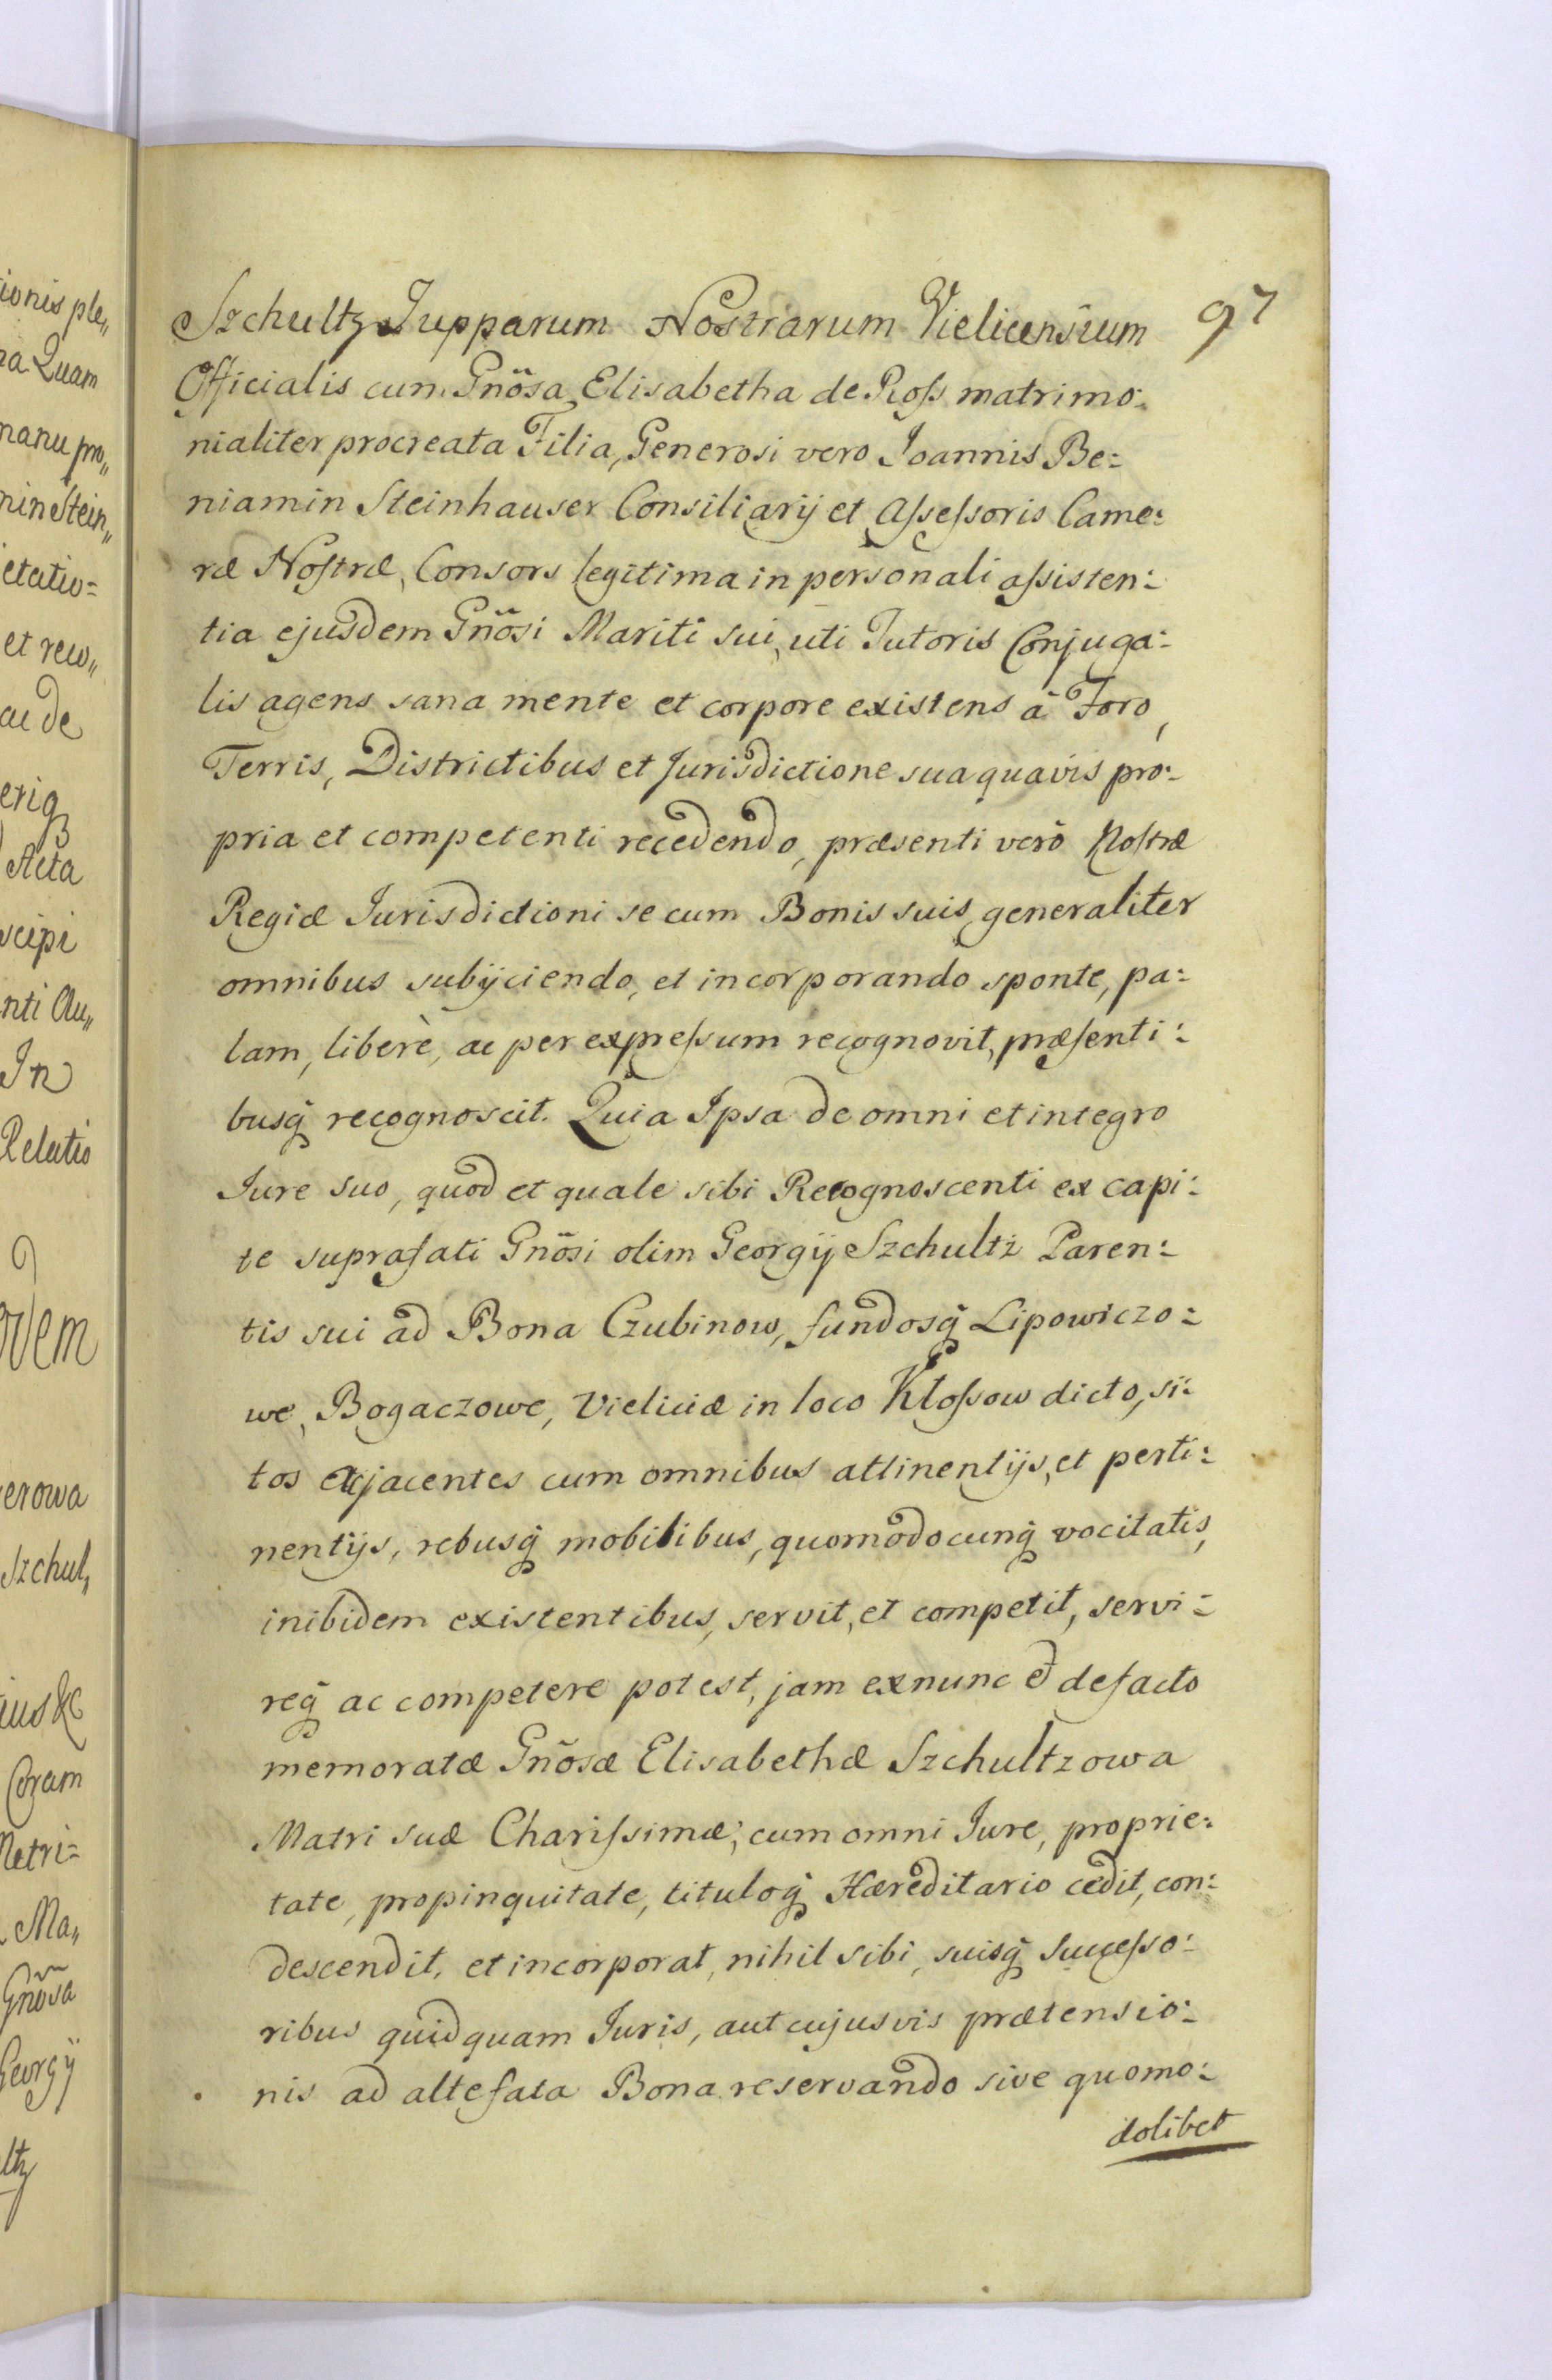 ionis ple„
na Quam
manu pro„
min Stein„
etatio=
et reco„
ac de
eriq
Acta
scipi
nti Au„
In
Relatio
ovem
erowa
Szchul„
ius &c
Coram
Metri=
Ma„
Gnõsa
Georgÿ
ltz
97
Szchultz Jupparum Nostrarum Vielicensium
Officialis cum Gnõsa Elisabetha de Ross matrimo=
nialiter procreata Filia, Generosi vero Joannis Be=
niamin Steinhauser Consiliarÿ et Aſseſsoris Came=
ræ Noſtræ, Consors legitima in personali aſsisten=
tia ejusdem Gnõsi Mariti sui, uti Tutoris Conjuga=
lis agens sana mente et corpore existens à Foro,
Terris, Districtibus et Jurisdictione sua quavis pro=
pria et competenti recedendo, præsenti verò Noſtræ
Regiæ Jurisdictioni se cum Bonis suis generaliter
omnibus subÿciendo, et incorporando sponte, pa=
lam, liberè, ac per expreſsum recognovit, præſenti=
busq̃ recognoscit. Quia Ipsa de omni et integro
Jure suo, quod et quale sibi Recognoscenti ex capi=
te suprafati Gnõsi olim Georgÿ Szchultz Paren=
tis sui ad Bona Czubinow, fundosq̃ Lipowiczo=
we, Bogaczowe, Vieliciæ in loco Kłoſsow dicto, si=
tos adjacentes cum omnibus attinentÿs, et perti=
nentÿs, rebusq̃ mobilibus, quomodocunq̃ vocitatis,
inibidem existentibus, servit, et competit, servi=
req̃ ac competere potest, jam exnunc et defacto
memoratæ Gnõsæ Elisabethæ Szchultzowa
Matri suæ Chariſsimæ, cum omni Jure, proprie=
tate, propinquitate, tituloq̃ Hæreditario cedit, con=
descendit, et incorporat, nihil sibi, suisq̃ Succeſso=
ribus quidquam Juris, aut cujusvis prætensio=
nis ad altefata Bona reservando sive quomo=
dolibet